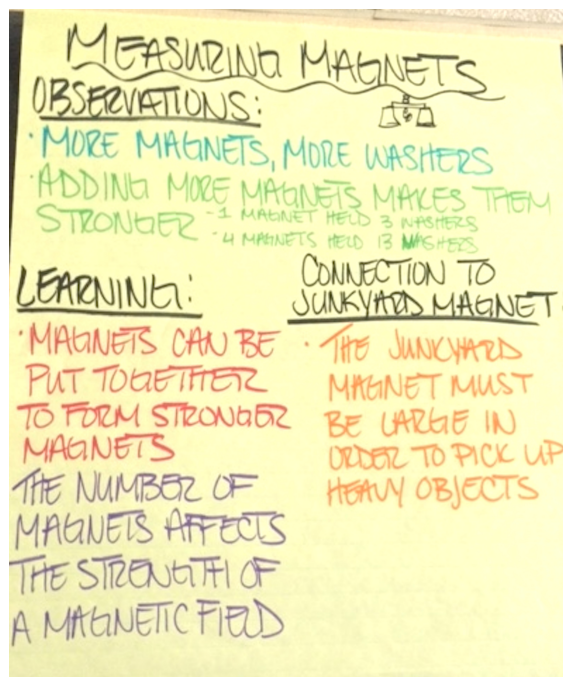 MEASURING MAGNETS
OBSERVATIONS:
· MORE MAGNETS, MORE WASHERS
· ADDING MORE MAGNETS MAKES THEM
STRONGER - 1 MAGNET HELD 3 WASHERS
- 4 MAGNETS HELD 13 WASHERS
LEARNING:
· MAGNETS CAN BE
PUT TOGETHER
TO FORM STRONGER
MAGNETS
THE NUMBER OF
MAGNETS AFFECTS
THE STRENGTH OF
A MAGNETIC FIELD
CONNECTION TO
JUNKYARD MAGNET
· THE JUNKYARD
MAGNET MUST
BE LARGE IN
ORDER TO PICK UP
HEAVY OBJECTS